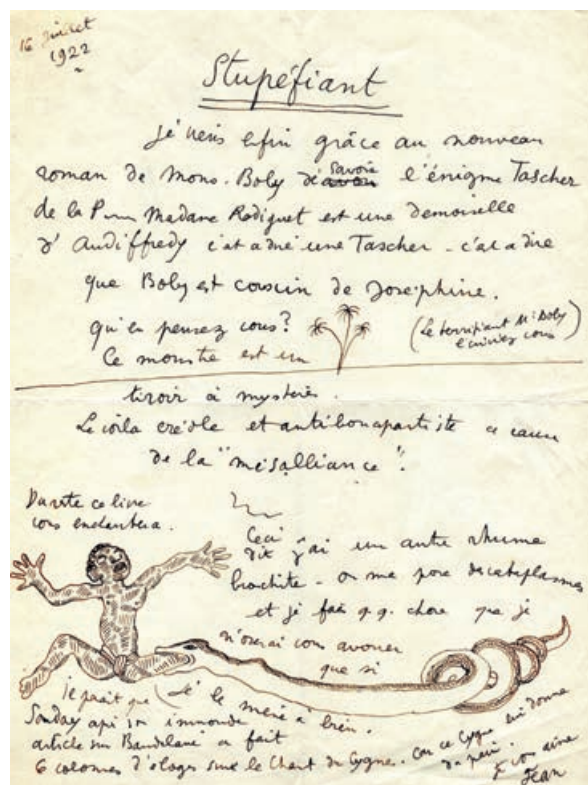 16 Juillet
1922
Stupéfiant
Je viens enfin grâce au nouveau
roman de Mons. Boly de savoir l'énigme Tascher
de la Madame Radiguet est une demoiselle
d'Audiffredy c'est à dire une Tascher - c'est à dire
que Boly est cousin de Joséphine.
qu'en pensez vous?
(Le terrifiant M. Boly
vous)
Ce monstre est un
tiroir à mystères.
Le voila créole et antibonapartiste a cause
de la "mésalliance".
Du reste ce livre
vous enchantera.
Ceci dit j'ai un autre rhume
bronchite - on me pose des cataplasmes
et je fais q.q. chose que je
n'oserai vous avouer
que si
je le mène à bien.
Il paraît que
Souday après son immonde
article sur Baudelaire a fait
6 colonnes d'éloges sur le Chant du Cygne. Car ce Cygne lui donne
du pain.
Je vous aime
Jean